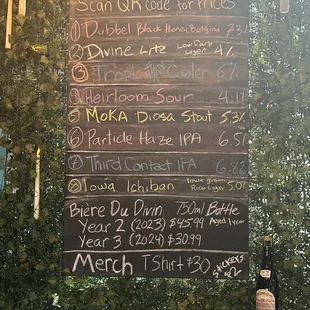 Scan QR code for Prices
① Dubbel Black Honey Belgian 7.3%
② Divine Lite Low Carb Lager 4%
③ Tropic Cooler 6%
④ Heirloom Sour 4.1%
⑤ MOKA Diosa Stout 5.3%
⑥ Particle Haze IPA 6.5%
⑦ Third Contact IPA 6.8%
⑧ Iowa Ichiban Iowa grown Rice Lager 5.0%
Biere Du Divin 750ml Bottle
Year 2 (2023) $45.99 Aged 1 year
Year 3 (2024) $30.99
Merch T Shirt $30 stickers $2